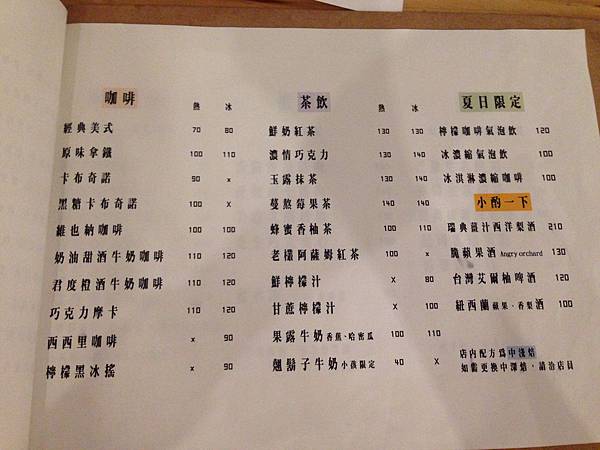 咖啡 熱 冰
經典美式 70 80
原味拿鐵 100 110
卡布奇諾 90 x
黑糖卡布奇諾 100 x
維也納咖啡 100 110
奶油甜酒牛奶咖啡 110 120
君度橙酒牛奶咖啡 110 120
巧克力摩卡 110 120
西西里咖啡 x 90
檸檬黑冰搖 x 90
茶飲 熱 冰
鮮奶紅茶 130 130
濃情巧克力 130 140
玉露抹茶 130 140
蔓熬莓果茶 140 140
蜂蜜香柚茶 100 110
老欉阿薩姆紅茶 100 x
鮮檸檬汁 x 80
甘蔗檸檬汁 x 100
果露牛奶 香蕉、哈密瓜 100 110
翹鬍子牛奶 小孩限定 40 x
夏日限定
檸檬咖啡氣泡飲 120
冰濃縮氣泡飲 100
冰淇淋濃縮咖啡 100
小酌一下
瑞典薑汁西洋梨酒 210
脆蘋果酒 Angry orchard 130
台灣艾爾柚啤酒 120
紐西蘭 蘋果、香梨 酒 100
店內配方為中淺焙
如需更換中深焙，請洽店員